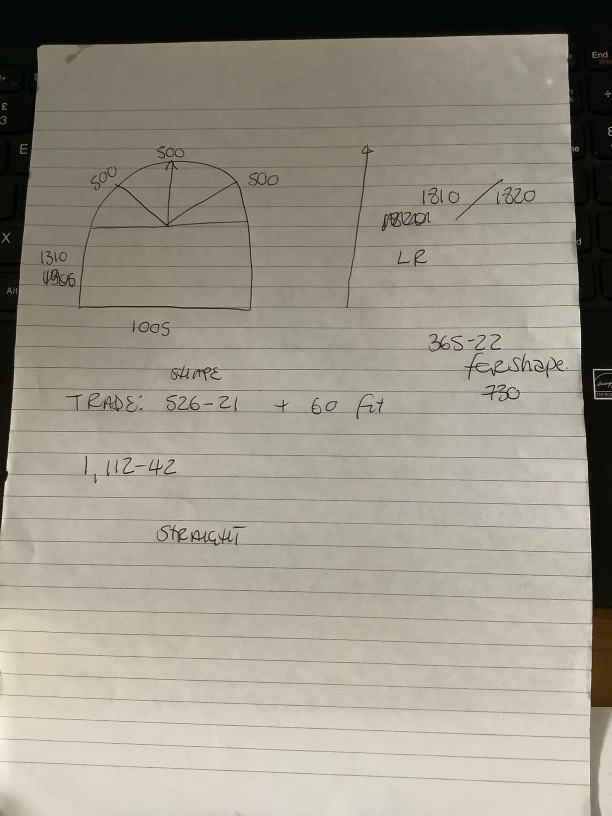 500
500
500
1810 / 1820
LR
1310
1005
365-22
for shape.
730
SHAPE
TRADE: 526-21 + 60 fit
1,112-42
STRAIGHT
End
£
3
E
X
Alt